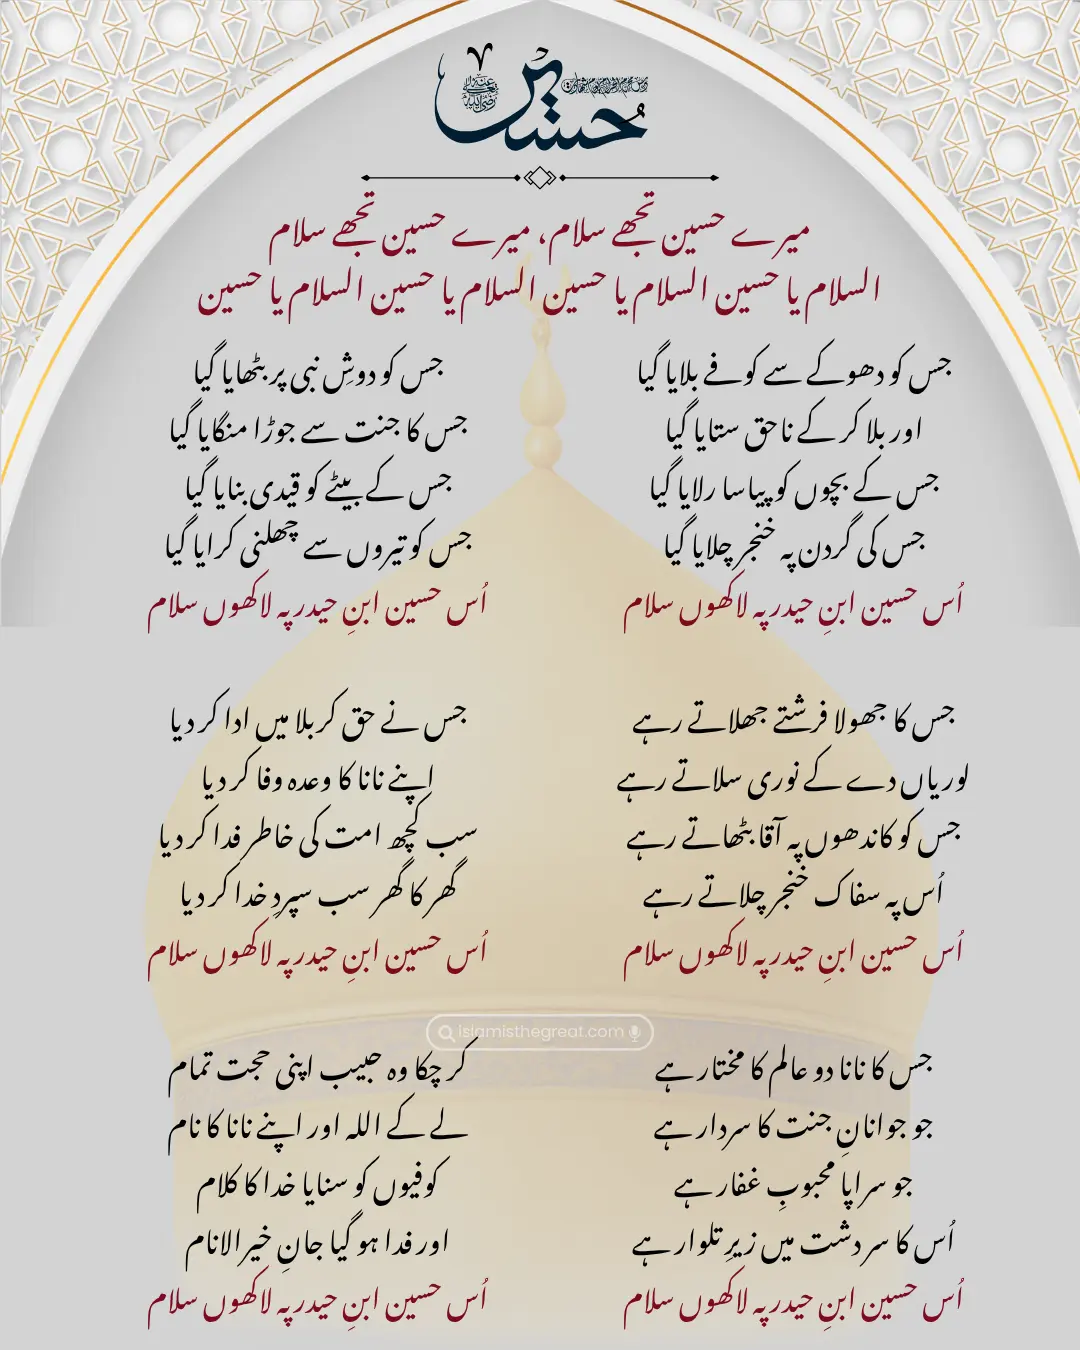 حسین
رضی اللہ عنہ
میرے حسین تجھے سلام، میرے حسین تجھے سلام
السلام یا حسین السلام یا حسین السلام یا حسین السلام یا حسین
جس کو دھوکے سے کوفے بلایا گیا
اور بلا کر کے ناحق ستایا گیا
جس کے بچوں کو پیاسا رلایا گیا
جس کی گردن پہ خنجر چلایا گیا
اُس حسین ابنِ حیدر پہ لاکھوں سلام
جس کو دوشِ نبی پر بٹھایا گیا
جس کا جنت سے جوڑا منگایا گیا
جس کے بیٹے کو قیدی بنایا گیا
جس کو تیروں سے چھلنی کرایا گیا
اُس حسین ابنِ حیدر پہ لاکھوں سلام
جس کا جھولا فرشتے جھلاتے رہے
لوریاں دے کے نوری سلاتے رہے
جس کو کاندھوں پہ آقا بٹھاتے رہے
اُس پہ سفاک خنجر چلاتے رہے
اُس حسین ابنِ حیدر پہ لاکھوں سلام
جس نے حق کربلا میں ادا کر دیا
اپنے نانا کا وعدہ وفا کر دیا
سب کچھ امت کی خاطر فدا کر دیا
گھر کا گھر سب سپردِ خدا کر دیا
اُس حسین ابنِ حیدر پہ لاکھوں سلام
islamisthegreat.com
جس کا نانا دو عالم کا مختار ہے
جو جوانانِ جنت کا سردار ہے
جو سراپا محبوبِ غفار ہے
اُس کا سر دشت میں زیرِ تلوار ہے
اُس حسین ابنِ حیدر پہ لاکھوں سلام
کر چکا وہ حبیب اپنی حجت تمام
لے کے اللہ اور اپنے نانا کا نام
کوفیوں کو سنایا خدا کا کلام
اور فدا ہو گیا جانِ خیرالانام
اُس حسین ابنِ حیدر پہ لاکھوں سلام